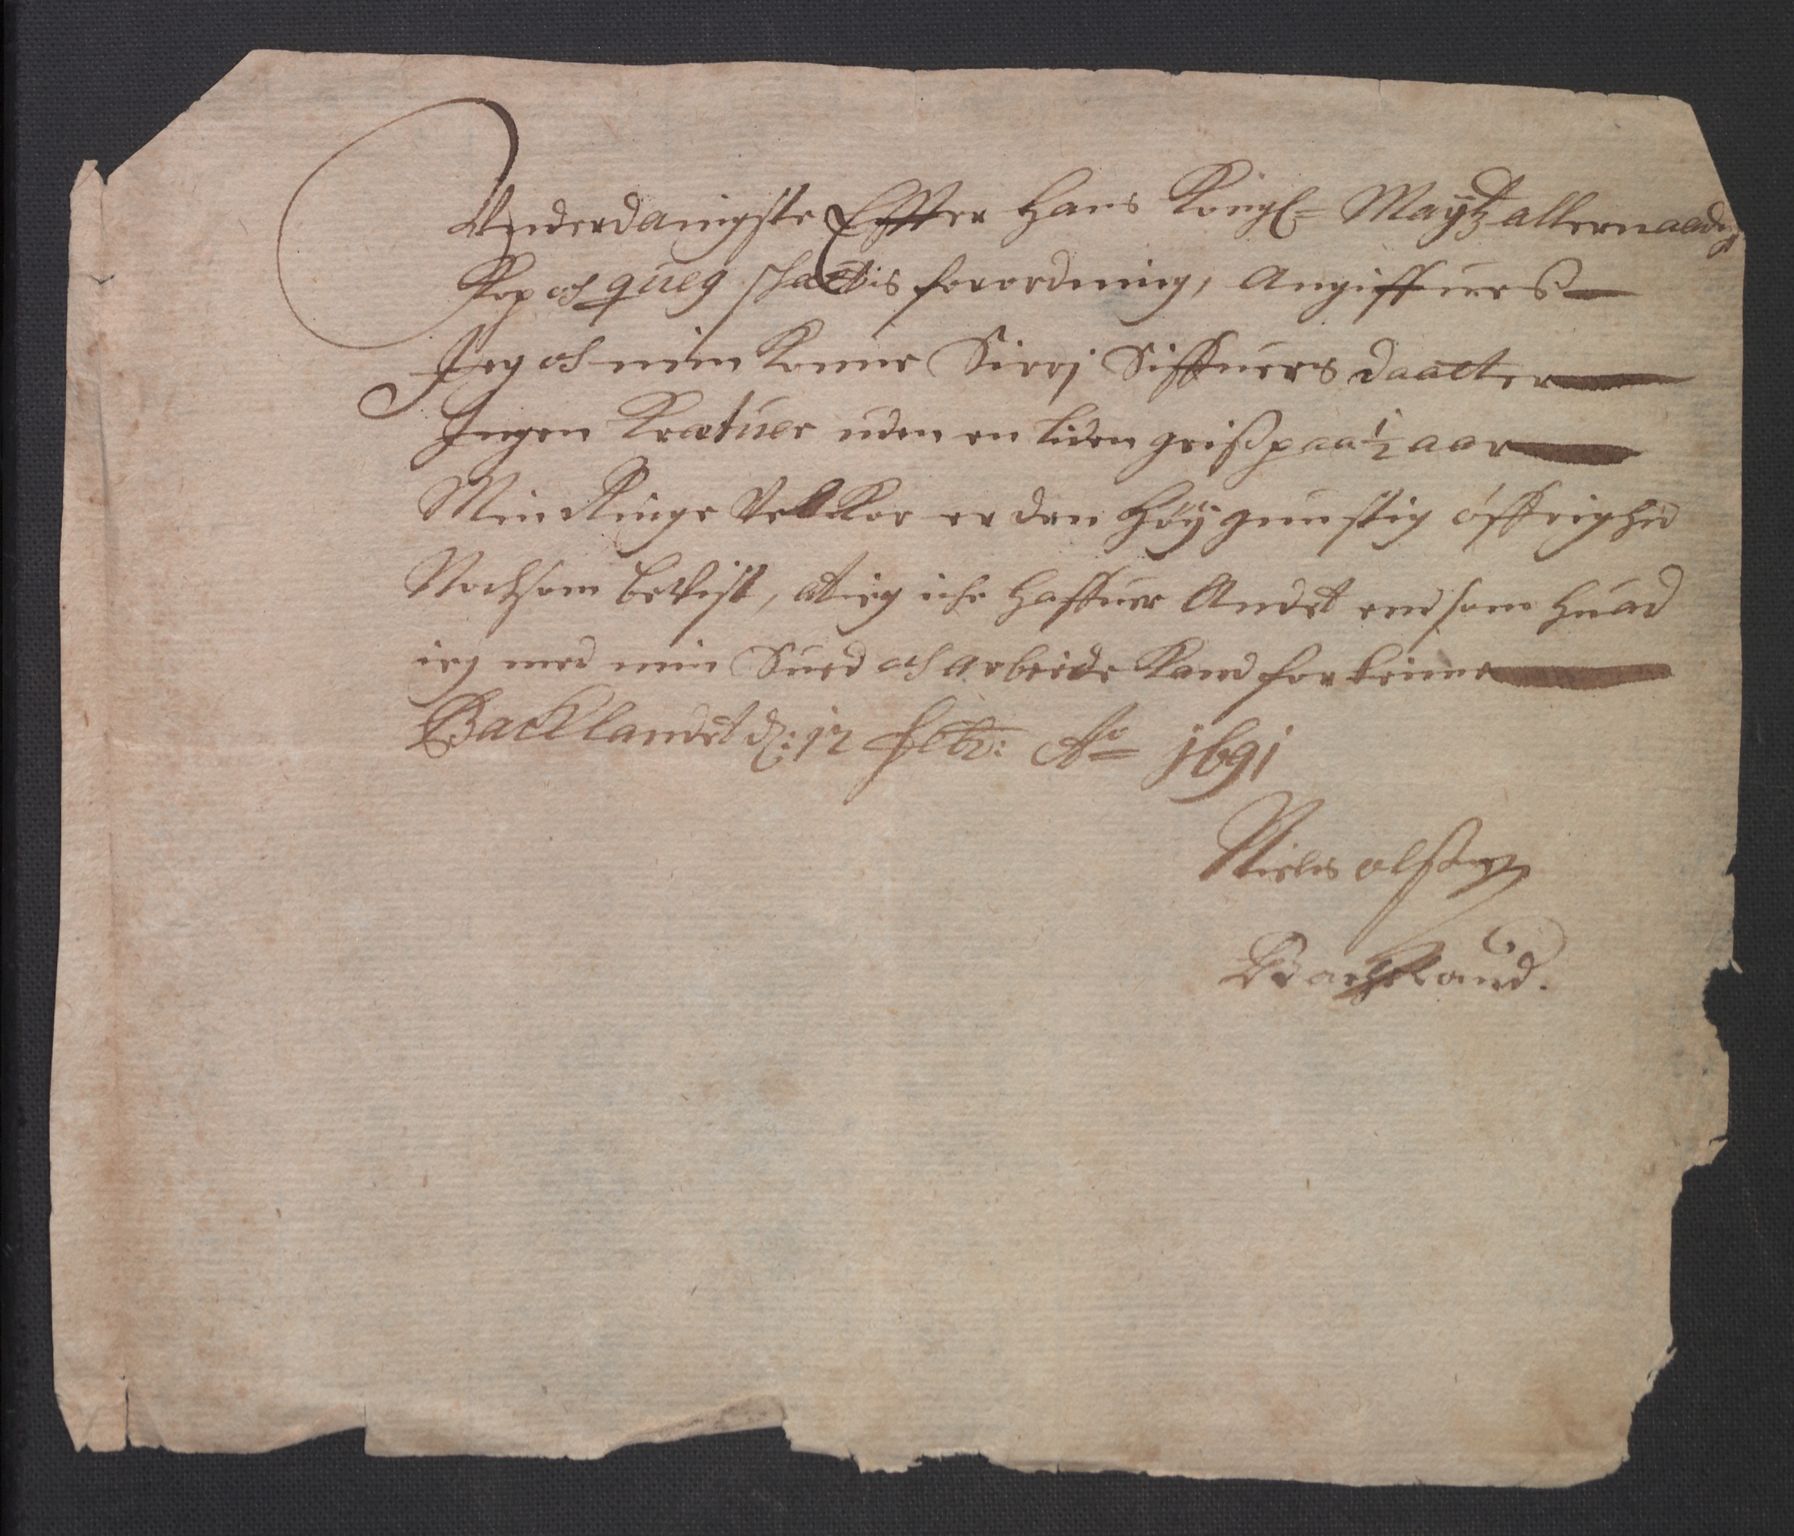 Vnderdanigste Effter Hans Kongl= Maytz allernaadig
Kop och queg schattis forordning, Angiffues
Jeg och min Konne Sirri Siffuers daatter
Ingen Krætuer uden en liden griß paa ½ aar
Min Ringe Velkor er den høygunstig øffrighed
Nochsom bevist, at ieg iche haffuer Andet end som huad
ieg med min Sued och arbeide Kand fortienne
Backlandet d: 12 Febr: Ao 1691
Niels olsen
Bachland.